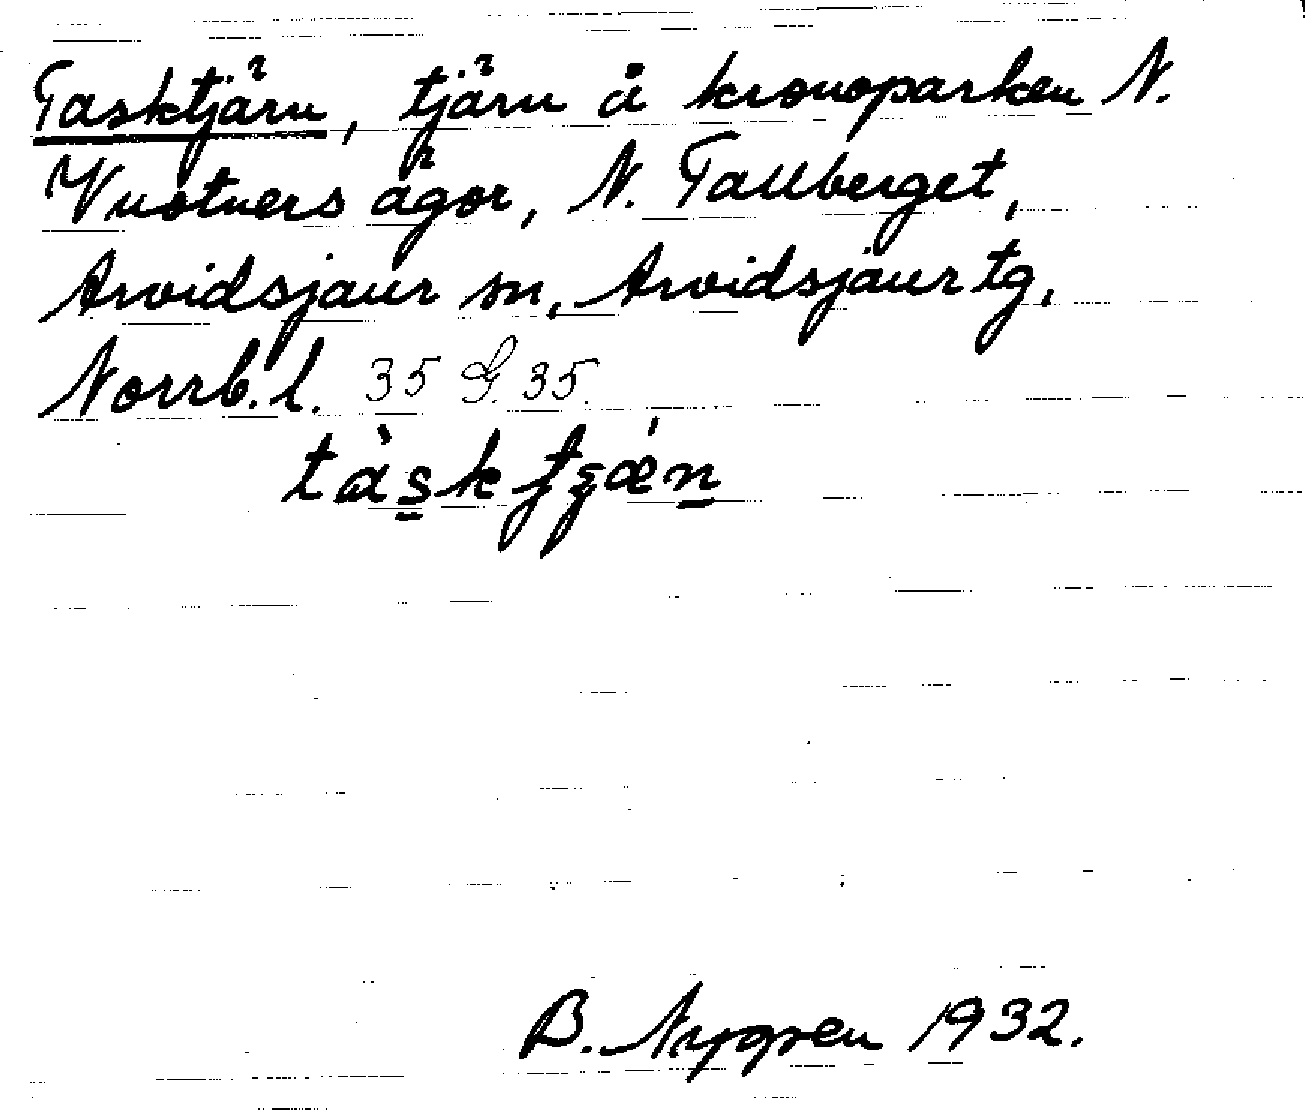 Tasktjärn, tjärn å kronoparken N.
Vuotners ägor, N. Tallberget,
Arvidsjaur sn, Arvidsjaur tg.
Norrb. l. 35 G. 35.
B. Nygren 1932.